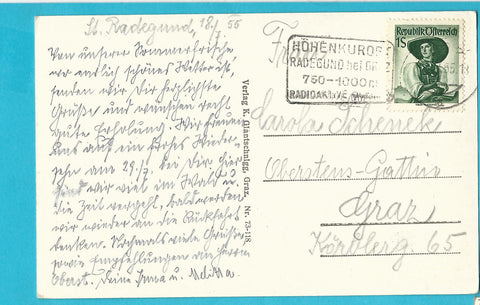 St. Radegund, 18/7 55
Von unserer Sommerfrische
wo endlich schönes Wetter ist,
senden wir Dir herzlichste
Grüße und wünschen recht
gute Erholung. Wir freuen
uns auf ein frohes Wieder-
sehn am 29./7. bei Dir hier
sind wir viel im Wald u.
die Zeit vergeht, bald werden
wir wieder an die Rückfahrt
denken. Nochmals viele Grüße
sowie Empfehlungen an Herrn
Oberst. Deine Irma u.
Verlag K. Glantschnigg, Graz. Nr. 73-118.
HÖHENKURORT
RADEGUND bei GR
750-1000 m
RADIOAKTIVE
Republik Österreich
1S
Frau
Carola Schenek
Oberstens-Gattin
Graz
Körblerg. 65